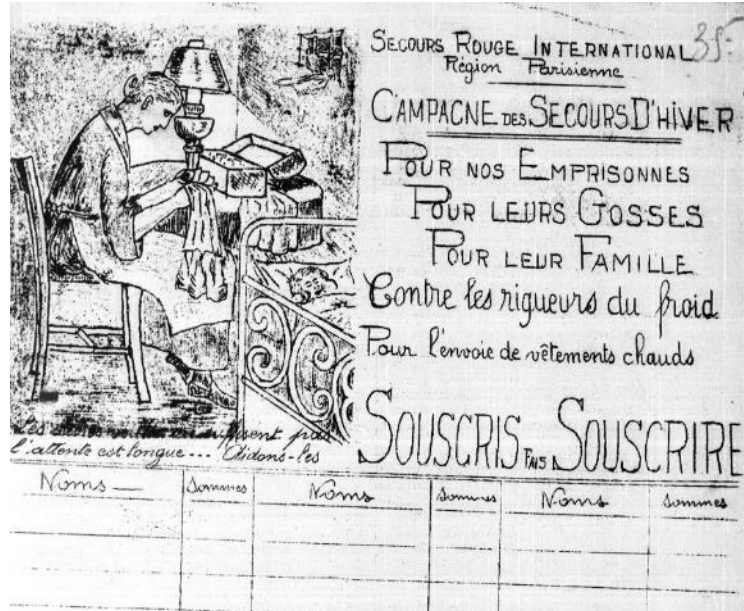 35-
SECOURS ROUGE INTERNATIONAL
Région Parisienne
CAMPAGNE DES SECOURS D'HIVER
POUR NOS EMPRISONNES
POUR LEURS GOSSES
POUR LEUR FAMILLE
Contre les rigueurs du froid.
Pour l'envoie de vêtements chauds
SOUSCRIS FAIS SOUSCRIRE
Les suffisent pas
l'attente est longue... Aidons-les
Noms Sommes Noms Sommes Noms Sommes